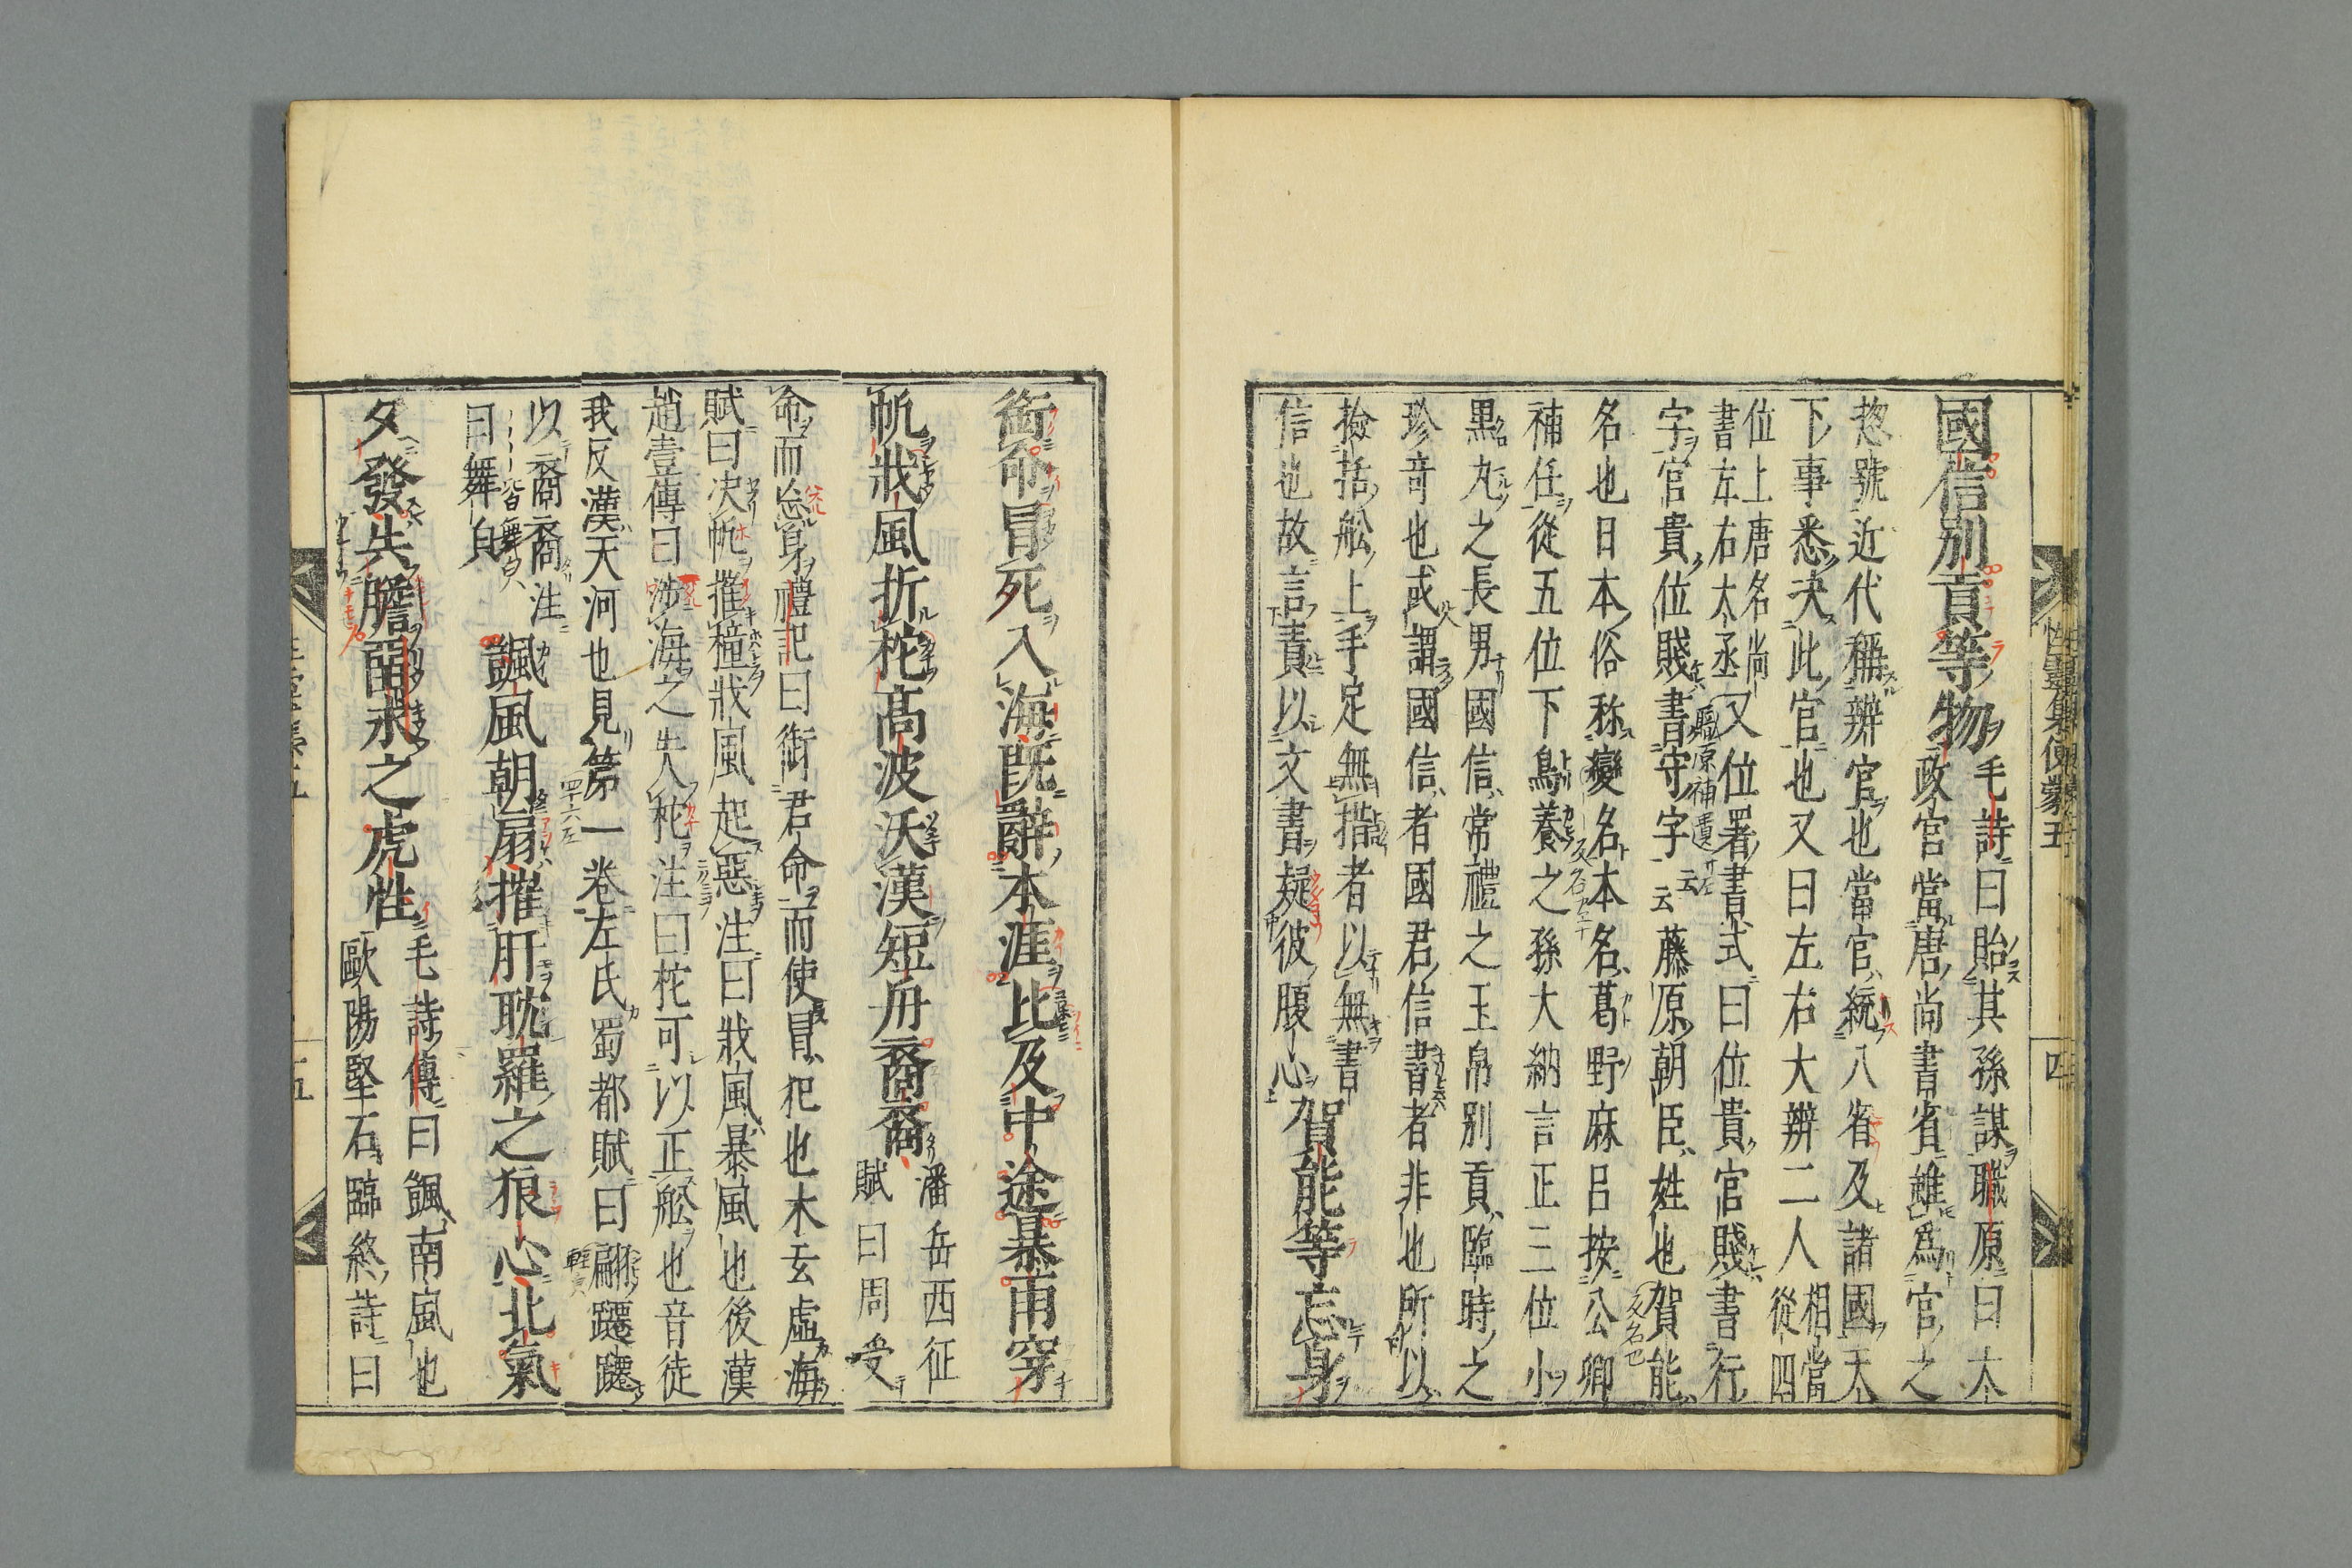 國信別貢等物
毛詩曰貽其孫謀職原曰太
政官當唐尚書省雖爲官之
惣號近代稱辨官也當官統八省及諸國天
下事悉决此官也又曰左右大辨二人相當
從四
位上唐名尚
書左右太丞又位署書式曰位貴官賤書行
字官貴位賤書守字云藤原朝臣姓也賀能
名也日本俗称變名本名葛野麻呂按公卿
補任從五位下鳥養之孫大納言正三位小
黒丸之長男國信常禮之玉帛別貢臨時之
珍竒也或謂國信者國君信書者非也所以
撿括舩上手定無措者以無書
信也故言責以文書疑彼腹心
賀能等忘身
銜命冒死入海既辭本涯比及中途暴雨穿
帆戕風折柁髙波沃漢短舟裔裔
潘岳西征
賦曰周受
命而忘身禮記曰銜君命而使冒犯也木玄虛海
賦曰决帆摧橦戕風起惡注曰戕風暴風也後漢
趙壹傳曰渉海之失柁注曰柁可以正舩也音徒
我反漢天河也見第一卷左氏蜀都賦曰翩躚躚
以裔裔注
曰舞皃
颽風朝扇摧肝耽羅之狼心北氣
夕發失膽畱求之虎性
毛詩傳曰颽南風也
歐陽堅石臨終詩曰
性靈集便蒙五
四